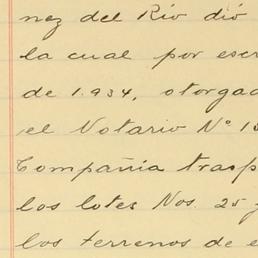 nez del Río dió
la cual por escr
de 1.934, otorgad
el Notario Nº 15
Compañia trasp
los lotes Nos. 25 y
los terrenos de e